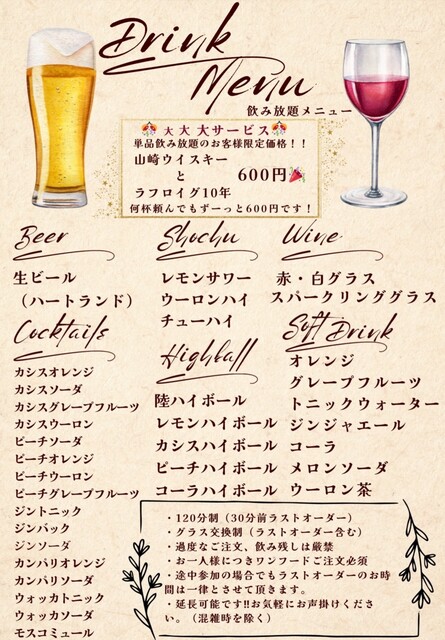 Drink
Menu
飲み放題メニュー
大大大サービス
単品飲み放題のお客様限定価格！！
山崎ウイスキー
と
ラフロイグ10年
600円
何杯頼んでもずーっと600円です！
Beer
生ビール
（ハートランド）
Shochu
レモンサワー
ウーロンハイ
チューハイ
Wine
赤・白グラス
スパークリンググラス
Cocktails
カシスオレンジ
カシスソーダ
カシスグレープフルーツ
カシスウーロン
ピーチソーダ
ピーチオレンジ
ピーチウーロン
ピーチグレープフルーツ
ジントニック
ジンバック
ジンソーダ
カンパリオレンジ
カンパリソーダ
ウォッカトニック
ウォッカソーダ
モスコミュール
Highball
陸ハイボール
レモンハイボール
カシスハイボール
ピーチハイボール
コーラハイボール
Soft Drink
オレンジ
グレープフルーツ
トニックウォーター
ジンジャエール
コーラ
メロンソーダ
ウーロン茶
・120分制（30分前ラストオーダー）
・グラス交換制（ラストオーダー含む）
・過度なご注文、飲み残しは厳禁
・お一人様につきワンフードご注文必須
・途中参加の場合でもラストオーダーのお時
間は一律とさせて頂きます。
・延長可能です!!お気軽にお声掛けくださ
い。（混雑時を除く）